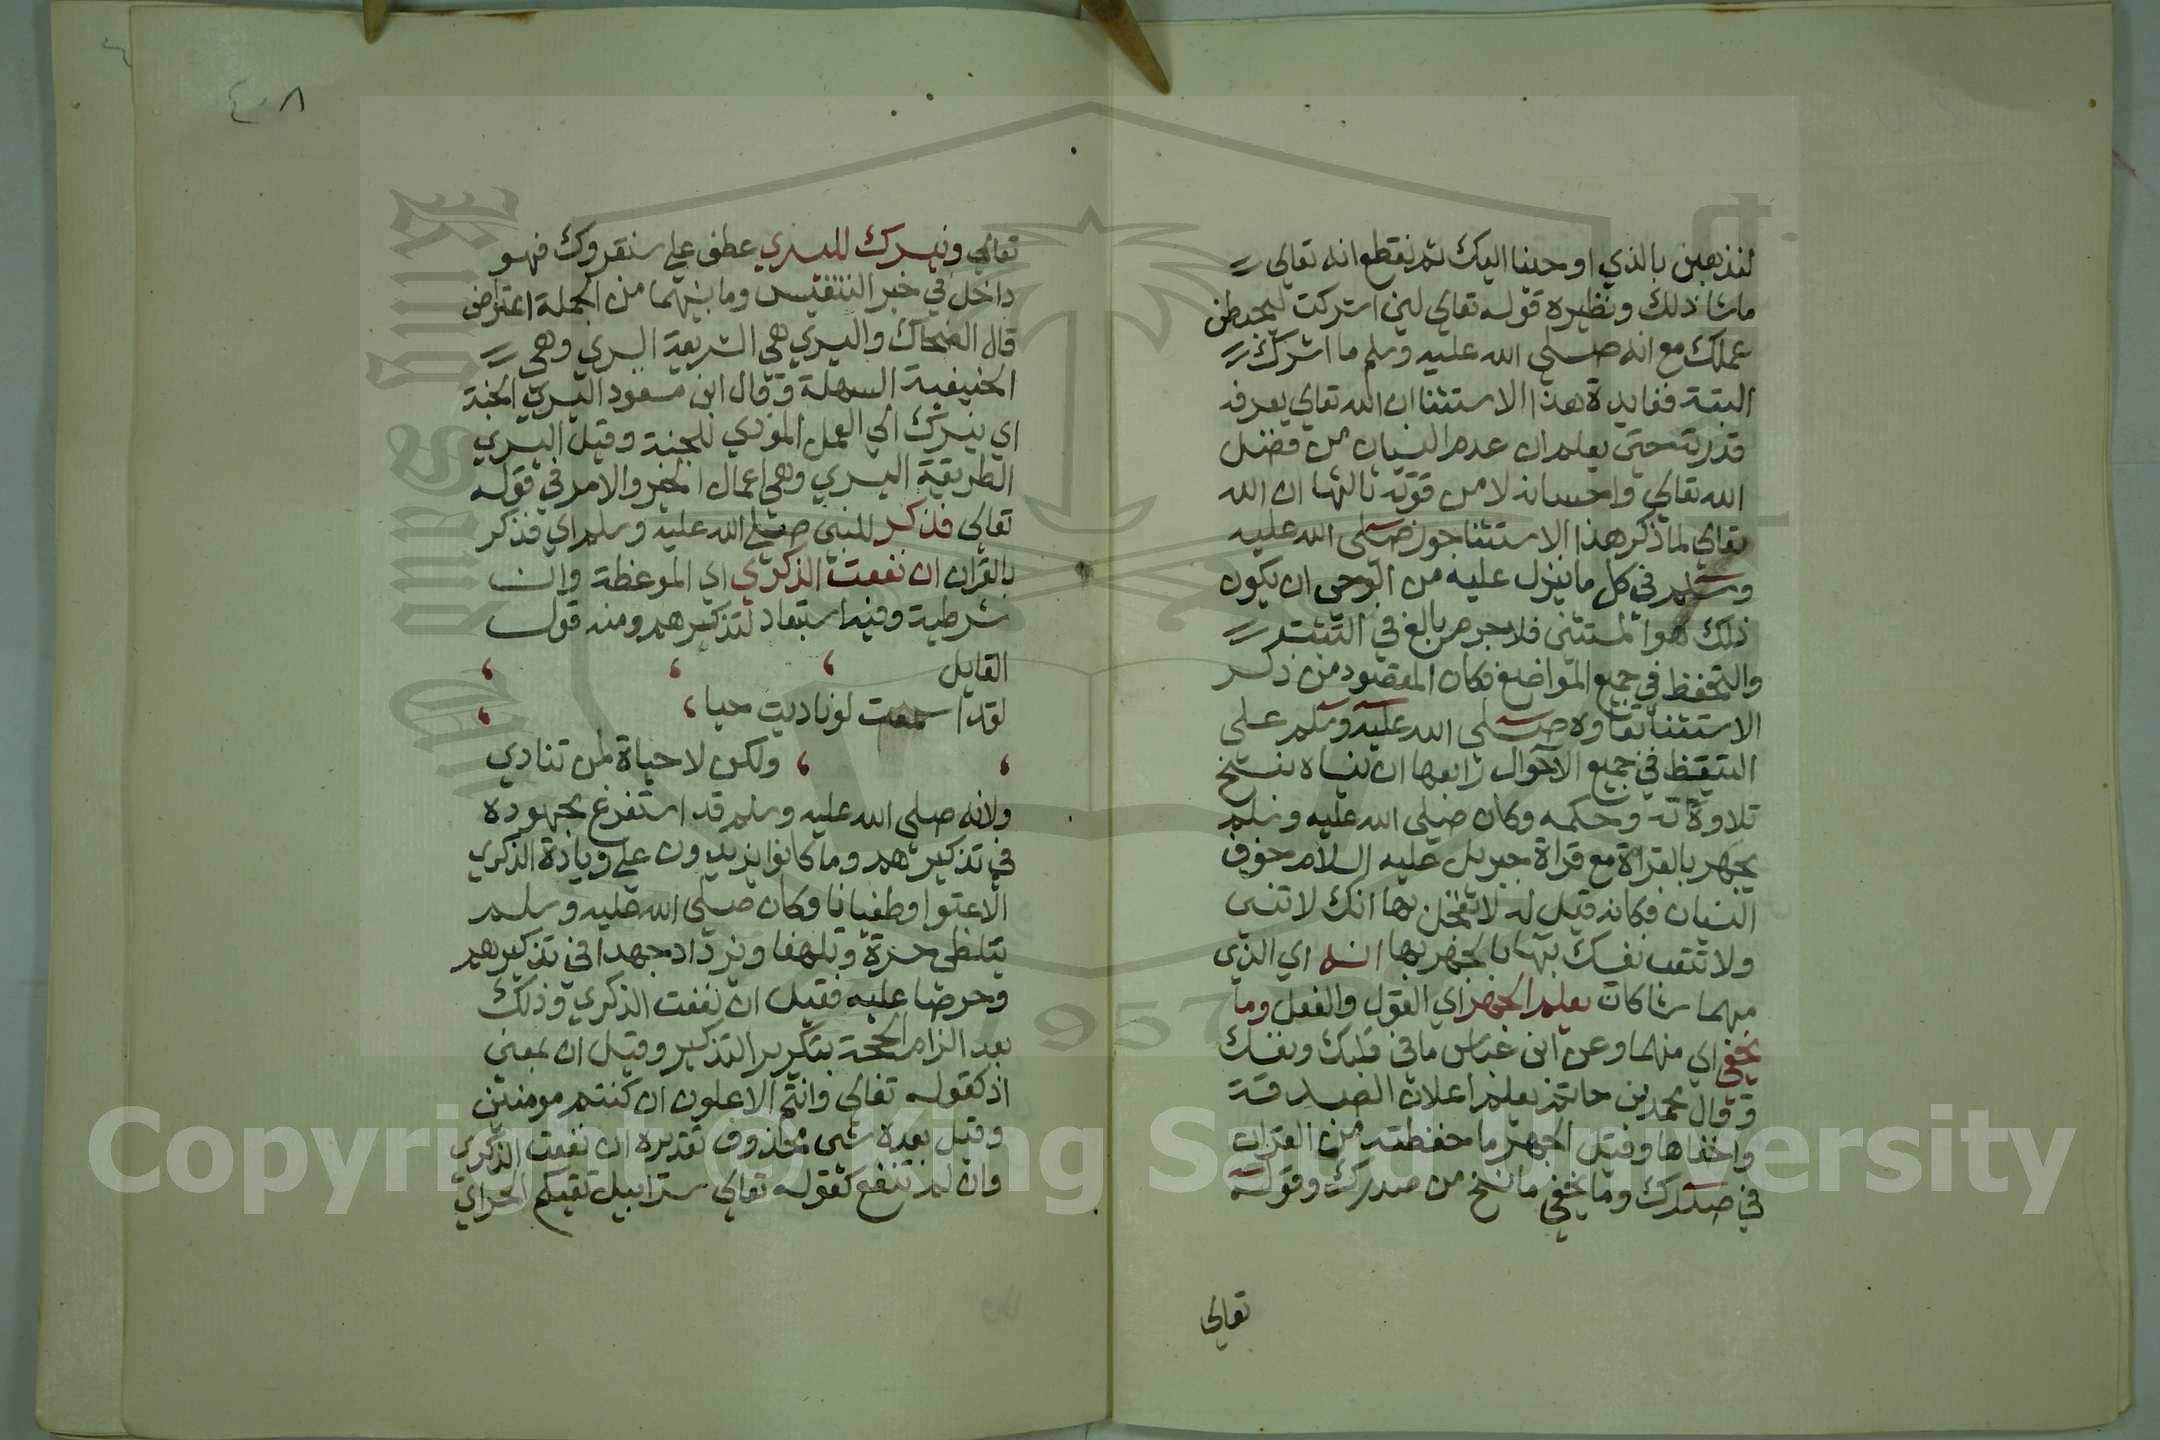 لنذهبن بالذي اوحينا اليك ثم نقطع انه تعالى
ماشا ذلك ونظيره قوله تعالى لين اشركت ليحبطن
عملك مع انه صلى الله عليه وسلم ما اشرك
البتة ففايدة هذا الاستثنا ان الله تعالى يعرفه
قدرته حتى يعلم ان عدم النسيان من فضل
الله تعالى واحسانه لا من قوته ثالثها ان الله
تعالى لما ذكر هذا الاستثنا جوز صلى الله عليه
وسلم في كل ما ينزل عليه من الوحي ان يكون
ذلك هو المستثنى فلا جرم بالغ في التثبت
والتحفظ في جميع المواضع فكان المقصود من ذكر
الاستثنا بقاوه صلى الله عليه وسلم على
التيقظ في جميع الاحوال رابعها ان ينساه بنسخ
تلاوته وحكمه وكان صلى الله عليه وسلم
يجهر بالقراة مع قراة جبريل عليه السلام خوف
النسيان فكانه قيل له لا تعجل بها انك لا تنسى
ولا تتعب نفسك بالجهر بها انه اي الذي
مهما شا كان يعلم الجهر اي القول والفعل وما
يخفى اي منهما وعن ابن عباس ما في قلبك ونفسك
وقال محمد بن حاتم يعلم اعلان الصدقة
واخفاها وقيل الجهر ما حفظته من القران
في صدرك وما يخفى ما نسخ من صدرك وقوله
تعالى
٤٠٨
تعالى ونيسرك لليسرى عطف على سنقروك فهو
داخل في خبر التنفيس وما بينهما من الجملة اعتراض
قال الضحاك واليسرى هي الشريعة اليسرى وهي
الحنيفية السهلة وقال ابن مسعود اليسرى الجنة
اي نيسرك الى العمل المودي للجنة وقيل اليسرى
الطريقة اليسرى وهي اعمال الخير والامر في قوله
تعالى فذكر للنبي صلى الله عليه وسلم اي فذكر
بالقران ان نفعت الذكرى اي الموعظة وان
شرطية وفيه استبعاد لتذكيرهم ومنه قول
القايل
لقد اسمعت لو ناديت حيا
ولكن لا حياة لمن تنادي
ولانه صلى الله عليه وسلم قد استفرغ مجهوده
في تذكيرهم وما كانوا يزيدون على زيادة الذكرى
الا عتوا وطغيانا وكان صلى الله عليه وسلم
يتلظى حسرة وتلهفا ويزداد جهدا في تذكيرهم
وحرصا عليه فقيل ان نفعت الذكرى وذلك
بعد الزام الحجة بتكرير التذكير وقيل ان بمعنى
اذ كقوله تعالى وانتم الاعلون ان كنتم مومنين
وقيل بعده شي محذوف تقديره ان نفعت الذكرى
وان لم تنفع كقوله تعالى سرابيل تقيكم الحر اي
Copyright © King Saud University
1957